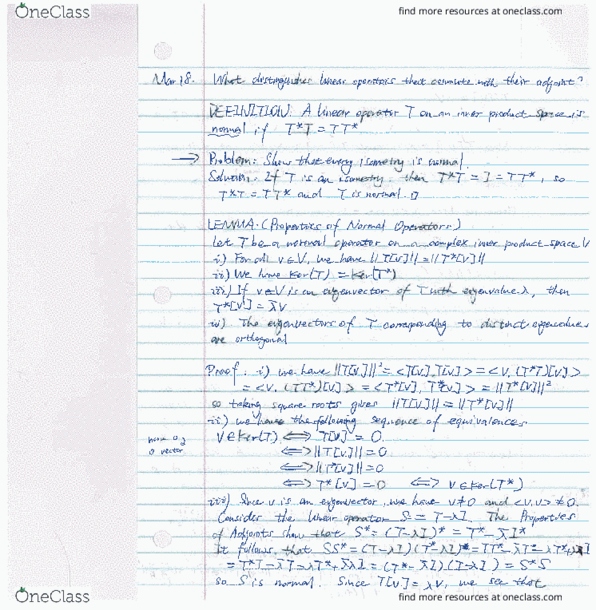 OneClass
find more resources at oneclass.com
Mar 18. What distinguishes linear operators that commute with their adjoint?
DEFINITION: A linear operator T on an inner product space is
normal if T*T = TT*
→ Problem: Show that every isometry is normal.
Solution: If T is an isometry, then T*T = I = TT*, so
T*T = TT* and T is normal. □
LEMMA: (Properties of Normal Operators)
Let T be a normal operator on a complex inner product space V
i) For all v∈V, we have ||T[v]|| = ||T*[v]||
ii) We have Ker(T) = Ker(T*)
iii) If v∈V is an eigenvector of T with eigenvalue λ, then
T*[v] = λ̄v
iv) The eigenvectors of T corresponding to distinct eigenvalues
are orthogonal
Proof: i) we have ||T[v]||² = <T[v], T[v]> = <v, (T*T)[v]>
= <v, (TT*)[v]> = <T*[v], T*[v]> = ||T*[v]||²
so taking square roots gives ||T[v]|| = ||T*[v]||
ii) we have the following sequence of equivalences
v∈Ker(T) ⟺ T[v] = 0
0 vector
⟺ ||T[v]|| = 0
⟺ ||T*[v]|| = 0
⟺ T*[v] = 0 ⟺ v∈Ker(T*)
iii) Since v is an eigenvector, we have v≠0 and <v,v> ≠ 0.
Consider the linear operator S = T-λI. The Properties
of Adjoints show that S* = (T-λI)* = T* - λ̄I
It follows that SS* = (T-λI)(T-λI)* = TT* - λ̄T - λT* + λλ̄I
= T*T - λ̄T - λT* + λ̄λI = (T* - λ̄I)(T-λI) = S*S
so S is normal. Since T[v] = λv, we see that
OneClass
find more resources at oneclass.com